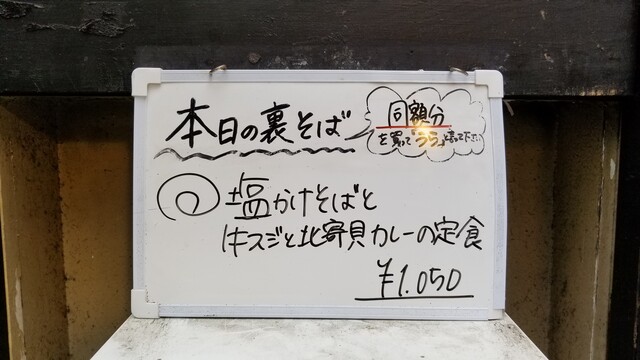 本日の裏そば
同額分
を買って「うら」と言って下さい
塩かけそばと
牛スジと北寄貝カレーの定食
¥1.050